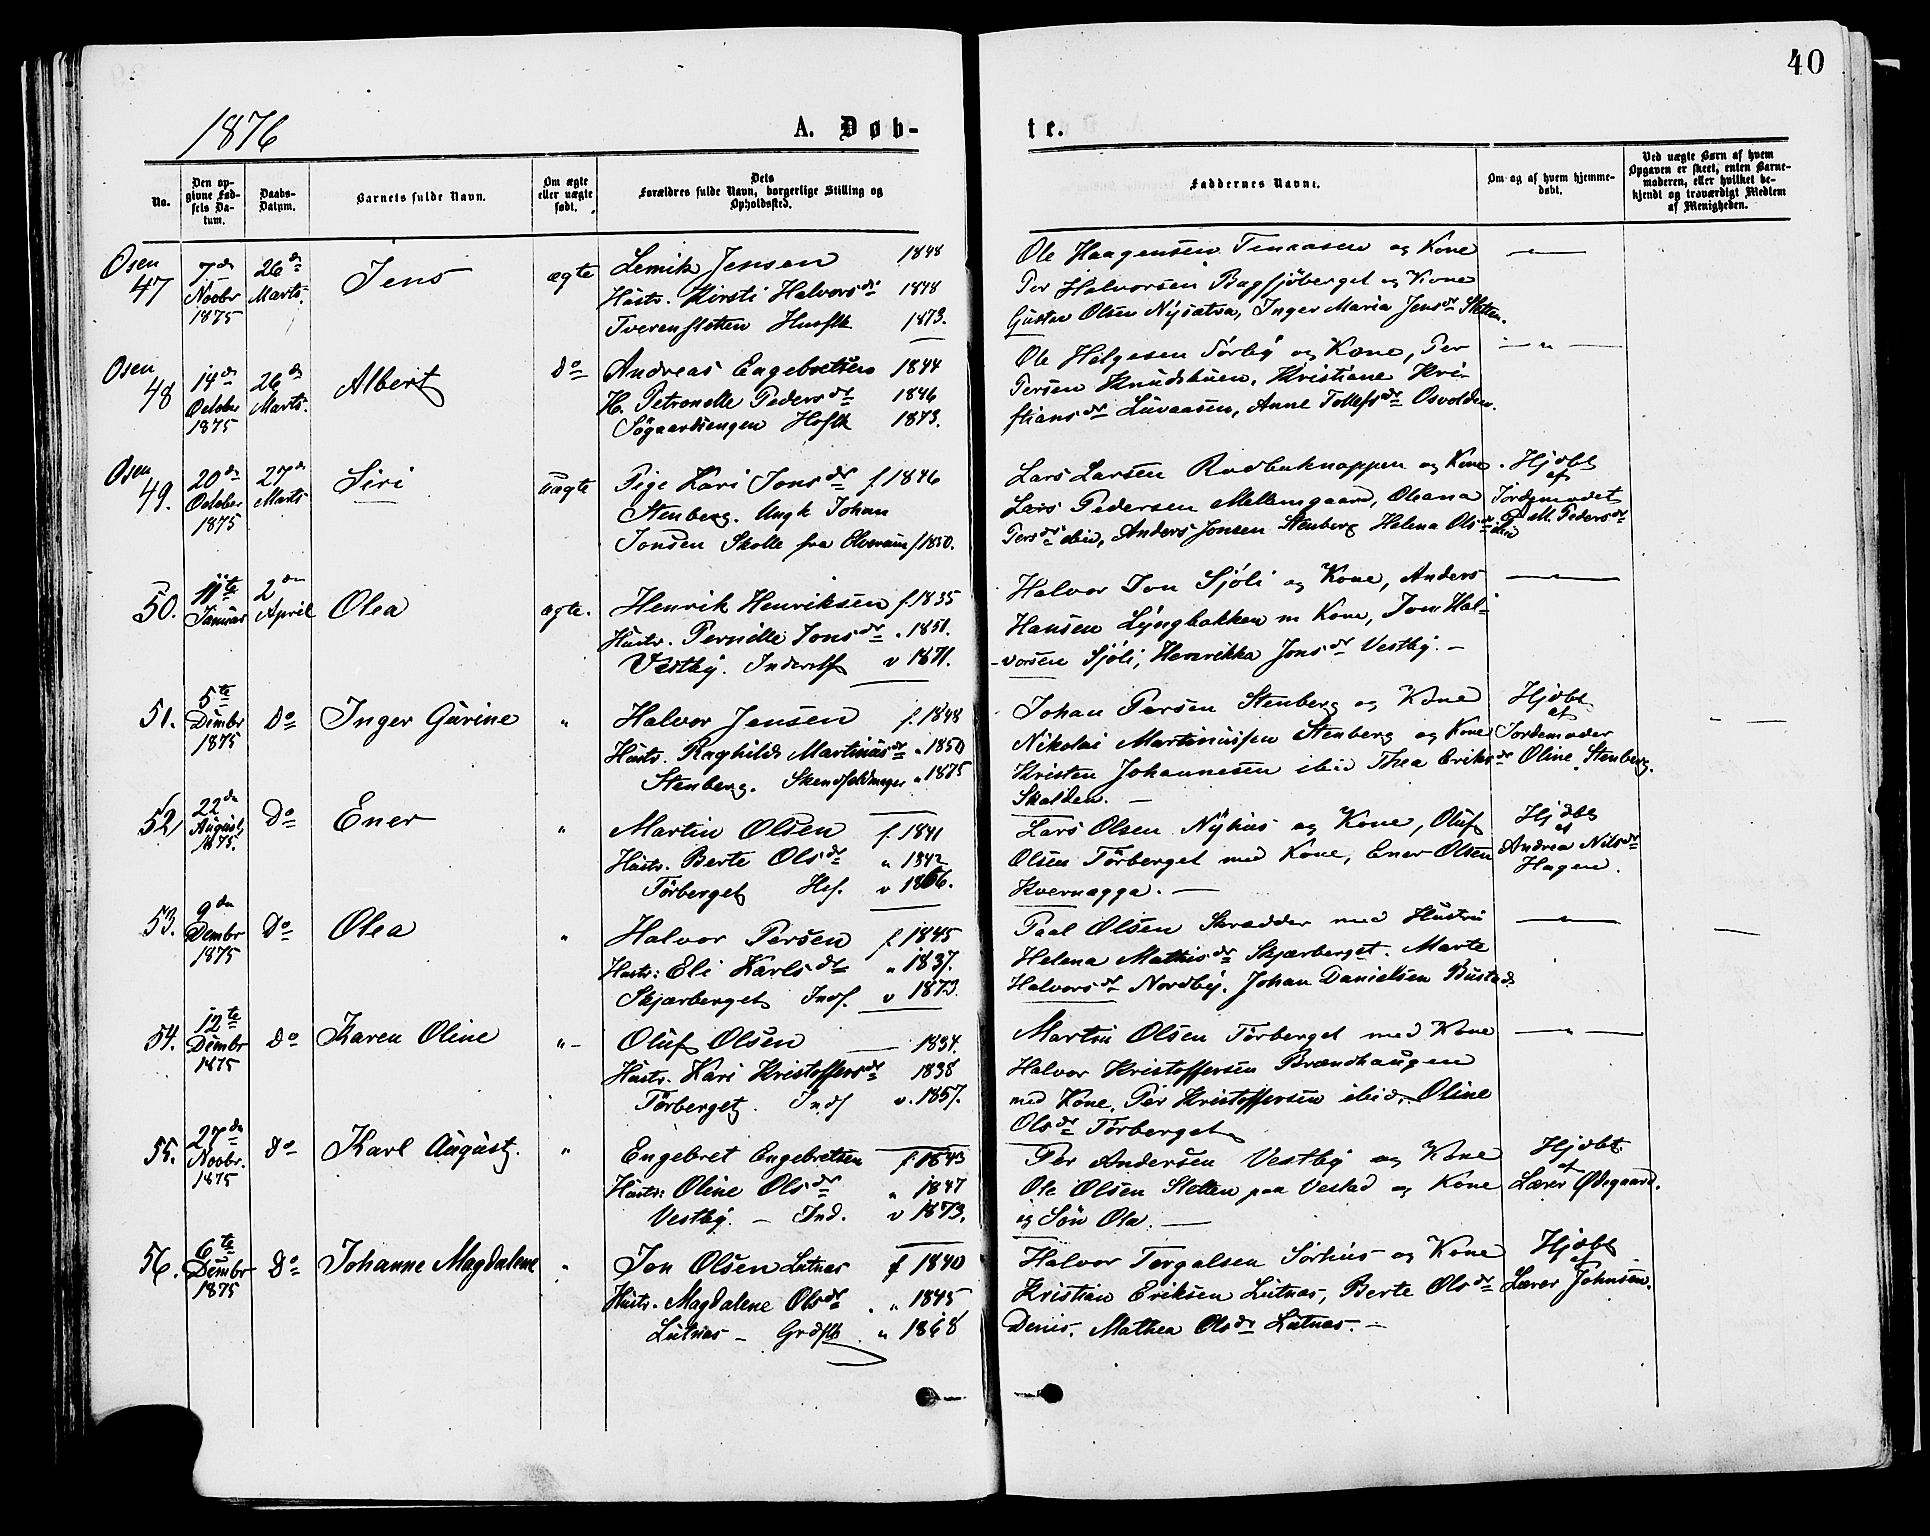 40
1876
A. Døb-
te.
No.
Den op-
givne Fød-
sels Da-
tum.
Daabs-
Datum.
Barnets fulde Navn.
Om ægte
eller uægte
født.
Dets
Forældres fulde Navn, borgerlige Stilling og
Opholdssted.
Faddernes Navne.
Om og af hvem hjemme-
døbt.
Ved uægte Børn af hvem
Opgaven er skeet, enten Barne-
moderen, eller hvilket be-
kjendt og troværdigt Medlem
af Menigheden.
Osen
47
7de
Novbr
1875
26de
Marts.
Jens
ægte
Lemik Jensen 1848
Hustr. Kirsti Halvorsdr 1848
Tverenfletten Husflk 1873.
Ole Haagensen Tenaasen og Kone
Per Halvorsen Bagsjöberget og Kone
Gustav Olsen Nysætra, Inger Maria Jensdr Sletten.
Osen
48
14de
October
1875
26de
Marts.
Albert
Do
Andreas Engebretsen 1844
H. Petronelle Pedersdr 1846
Søgaardsengen Hoflk 1873.
Ole Helgesen Nörby og Kone, Per
Persen Knudshuen, Kristiane Kri-
stiansdr Luvaasen, Anne Tollefsdr Osvolden.
Osen
49.
20de
October
1875
27de
Marts
Siri
uægte
Pige Kari Jonsdr f. 1846
Stenberg. Ungk Johan
Jonsen Skolle fra Elverum f. 1850.
Lars Larsen Rødbuknappen og Kone
Lars Pedersen Mellemgaard, Oleana
Persdr ibid, Anders Jonsen Stenberg Helena Olsdr ibid
Hjdbt
af
Jordemodet
M. Pedersdr
50.
11te
Januar
2den
April
Olea
ægte.
Henrik Henriksen f. 1835
Hustr. Pernille Jonsdr " 1851.
Vestby. Inderst v 1871.
Halvor Jon Sjöli og Kone, Anders
Hansen Lyngbakken m Kone, Jon Hal-
-vorsen Sjöli, Henrikka Jonsdr Vestby. –
51.
5te
Dember
1875
Do
Inger Gurine
"
Halvor Jensen f. 1848
Hustr. Raghild Martinusdr " 1850
Stenberg. " 1875
Johan Persen Stenberg og Kone
Nikolai Martinussen Stenberg og Kone
Kristen Johannesen ibid Thea Eriksdr
Skolden. –
Hjdbt
af
Jordemoder
Oline Stenberg.
52
22de
August
1875.
Do
Ener
"
Martin Olsen f. 1841
Hustr. Berte Olsdr " 1842
Törberget Hsf. v 1866.
Lars Olsen Nyhus og Kone, Oluf
Olsen Törberget med Kone, Ener Olsen
Kvernagga. –
Hjdbt
af
Andrea Nilsdr
Hagen.
53.
9de
Dembr
1875
Do
Olea
"
Halvor Persen f. 1845
Hustr: Eli Karlsdr " 1837.
Skjærberget Indf. v 1873.
Paal Olsen Skrædder med Hustru
Helena Mathisdr Skjærberget. Marte
Halvorsdr Nordby. Johan Danielsen Bustad
54.
12te
Dembr
1875
Do
Karen Oline
" –
Oluf Olsen 1834.
Hustr. Kari Kristoffersdr 1838
Törberget. Indf v. 1857.
Martin Olsen Törberget med Kone
Halvor Kristoffersen Brændhaugen
med Kone, Per Kristoffersen ibid, Oline
Olsdr Törberget
55.
27de
Novbr.
1875
Do
Karl August.
"
Engebret Engebretsen f. 1843
Hustr: Oline Olsdr " 1847
Vestby. – Ind. v 1873.
Per Andersen Vestby og Kone
Ole Olsen Sletten paa Vestad og Kone
og Sön Ola. –
Hjdbt
af
Lærer Ødegaard.
56.
6te
Dembr
1875
Do
Johanne Magdalene
"
Jon Olsen Lutnæs f 1840
Hustr. Magdalene Olsdr " 1845
Lutnæs – Grdflk " 1868
Halvor Torgalsen Sörhus og Kone
Kristian Eriksen Lutnæs, Berte Olsdr
Denis. Mathea Olsdr Lutnæs. –
Hjdbt
af
Lærer Johnsen.